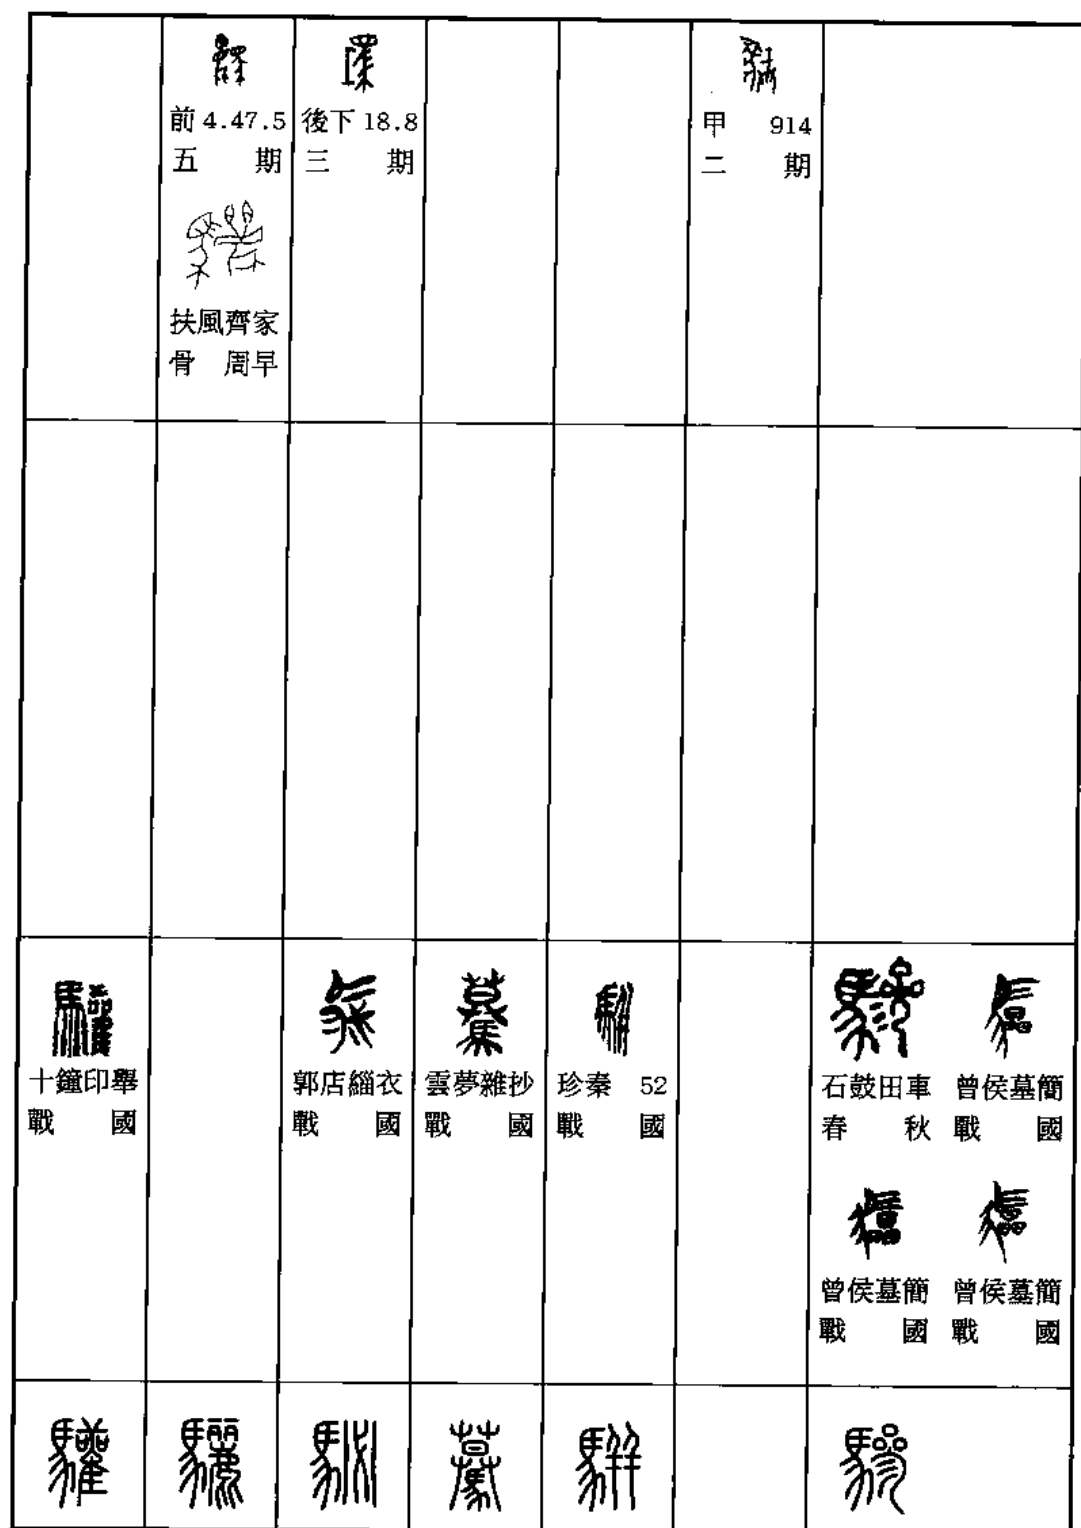 前 4.47.5
五 期
扶風齊家
骨 周早
後下 18.8
三 期
甲 914
二 期
十鐘印舉
戰 國
郭店緇衣
戰 國
雲夢雜抄
戰 國
珍秦 52
戰 國
石鼓田車
春 秋
曾侯墓簡
戰 國
曾侯墓簡
戰 國
曾侯墓簡
戰 國
驩
驪
驀
駢
驂